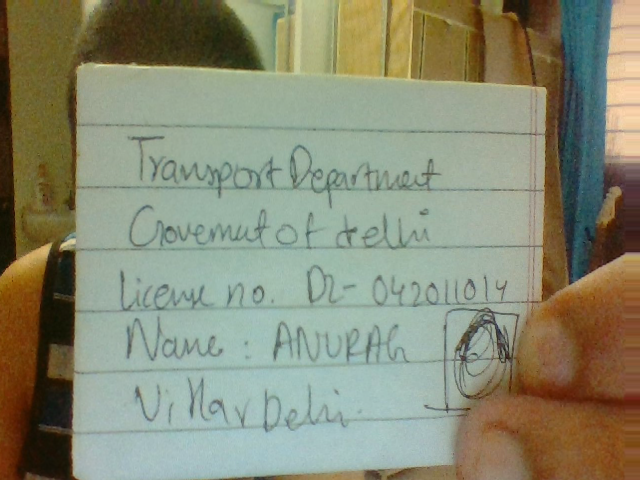 Transport Department
Governmut of delhi
License no. DL- 042011014
Name : ANURAG
Delhi.